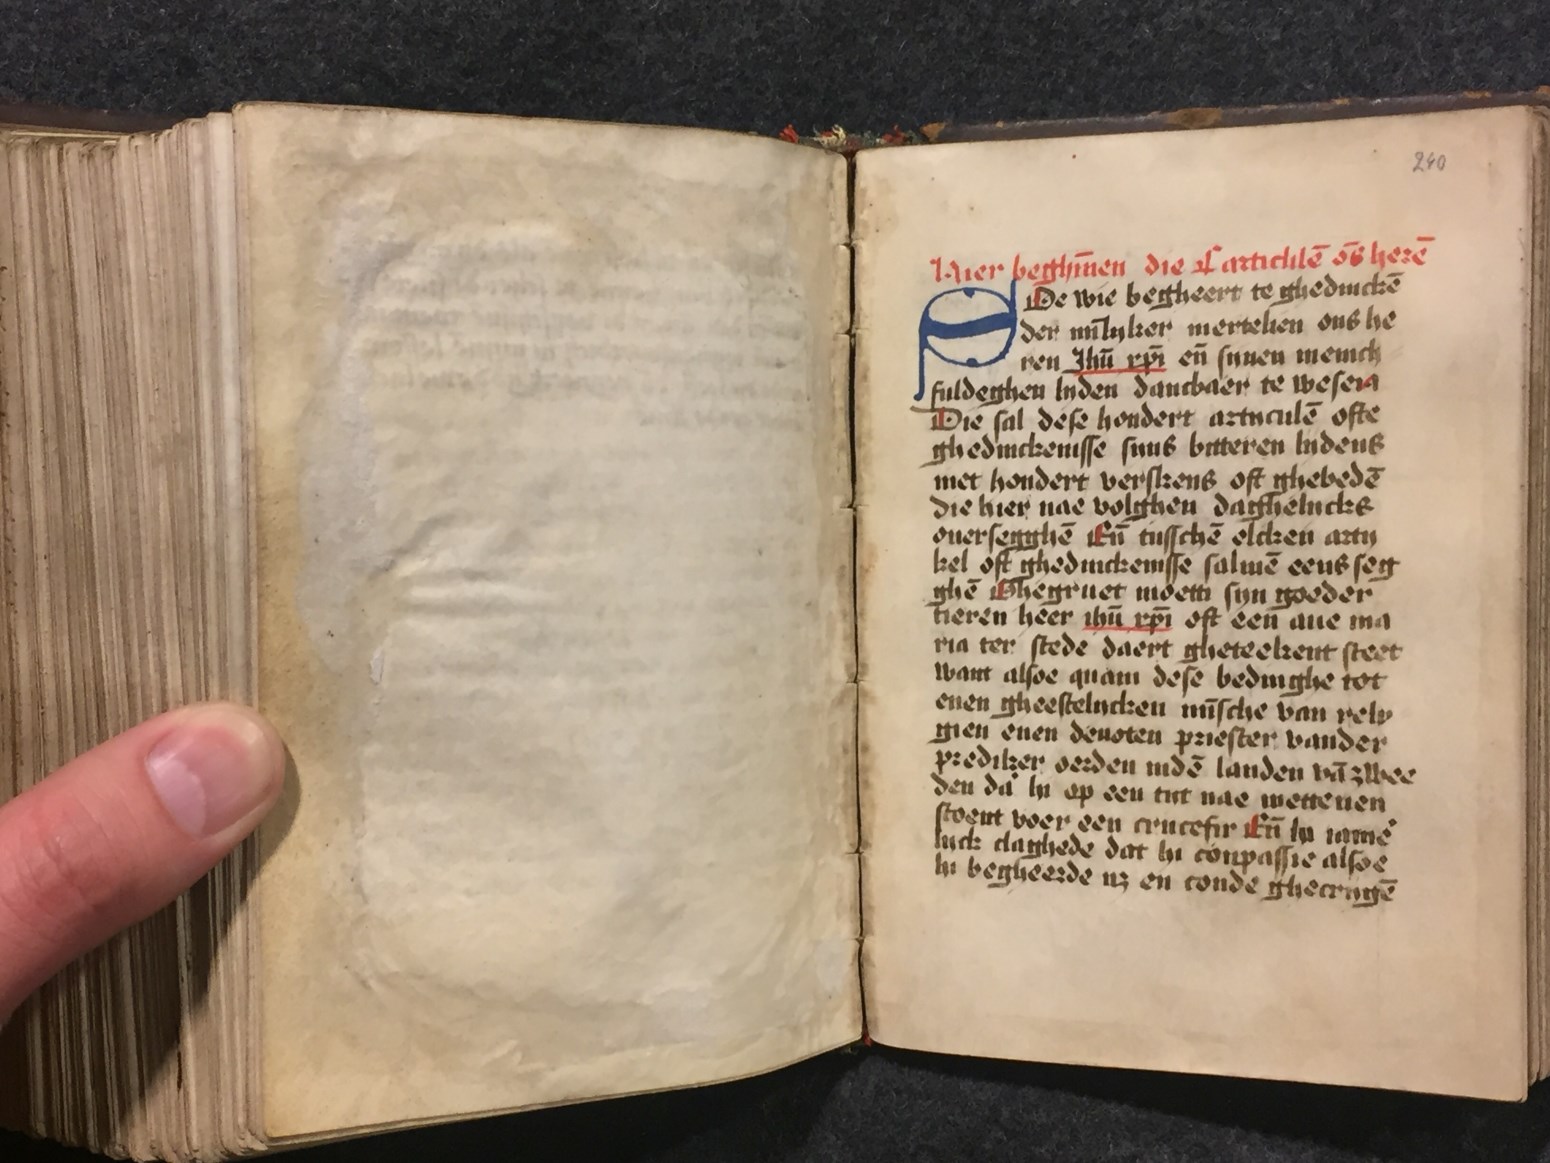 240
Hier beghīnen die C artickelē ōs herē
Soe wie begheert te ghedinckē
der mīlyker mertelien ons he
ren Jhū xp̄i eñ synen menich
fuldeghen lyden dancbaer te wesen
Die sal dese hondert artyculē ofte
ghedinckenisse syns bitteren lydens
met hondert verskens oft ghebedē
die hier nae volghen daghelycks
oversegghē Eñ tusschē elcken arty
kel oft ghedinckenisse salmē eens seg
ghē Ghegruet moetti syn goeder
tieren heer ihū xp̄i oft een aue ma
ria ter stede daert gheteekent steet
want alsoe quam dese bedinghe tot
enen gheestelycken mīsche van rely
gien enen deuoten priester vander
prediker oerden indē landen vā zwee
den da' hy op een tyt nae mettenen
stoent voer een crucefix Eñ hy iamē
lyck claghede dat hy conpassie alsoe
hy begheerde nz en conde ghecrygē